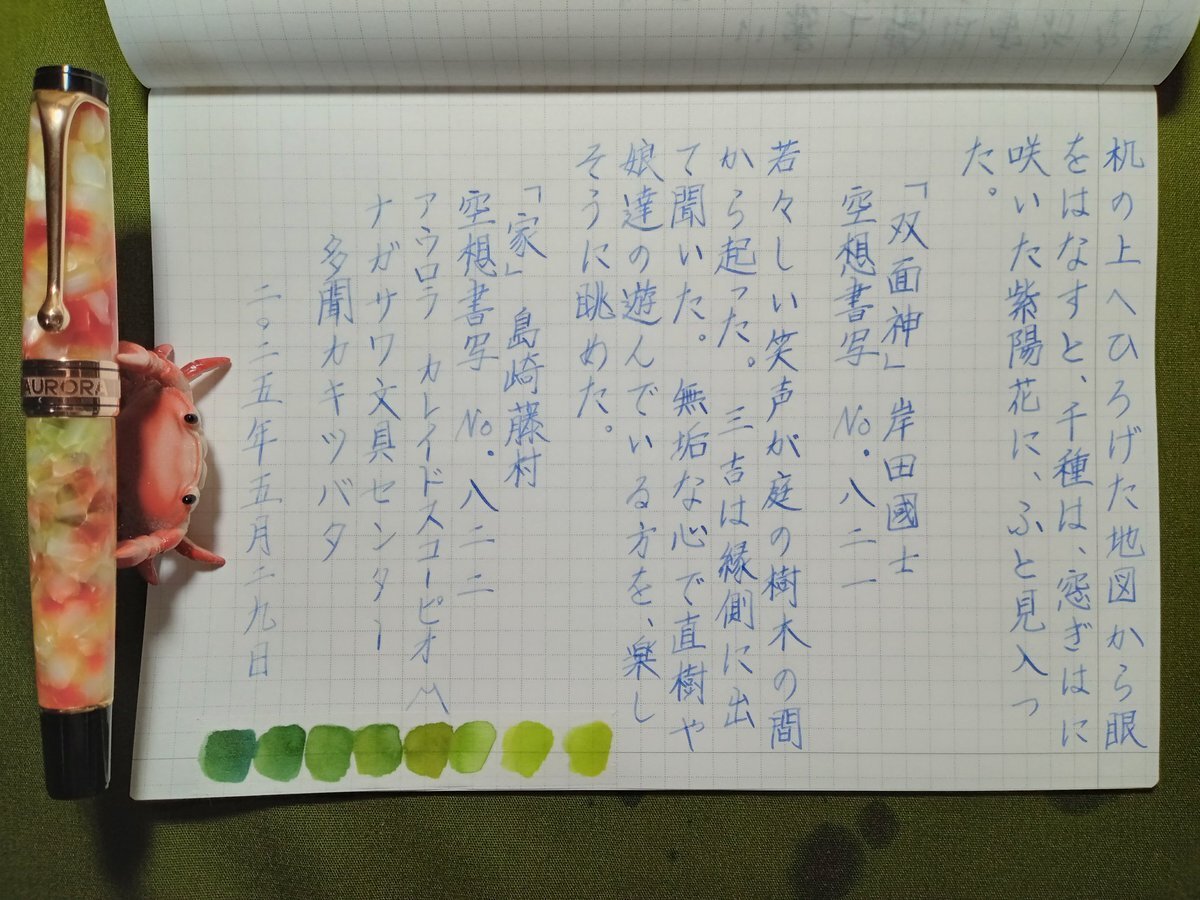 机の上へひろげた地図から眼
をはなすと、千種は、窓ぎはに
咲いた紫陽花に、ふと見入つ
た。
「双面神」 岸田國士
空想書写 No.八二一
若々しい笑声が庭の樹木の間
から起った。三吉は縁側に出
て聞いた。無垢な心で直樹や
娘達の遊んでいる方を、楽し
そうに眺めた。
「家」 島崎藤村
空想書写 No.八二二
アウロラ カレイドスコーピオ M
ナガサワ文具センター
多聞カキツバタ
二〇二五年五月二九日
AURORA